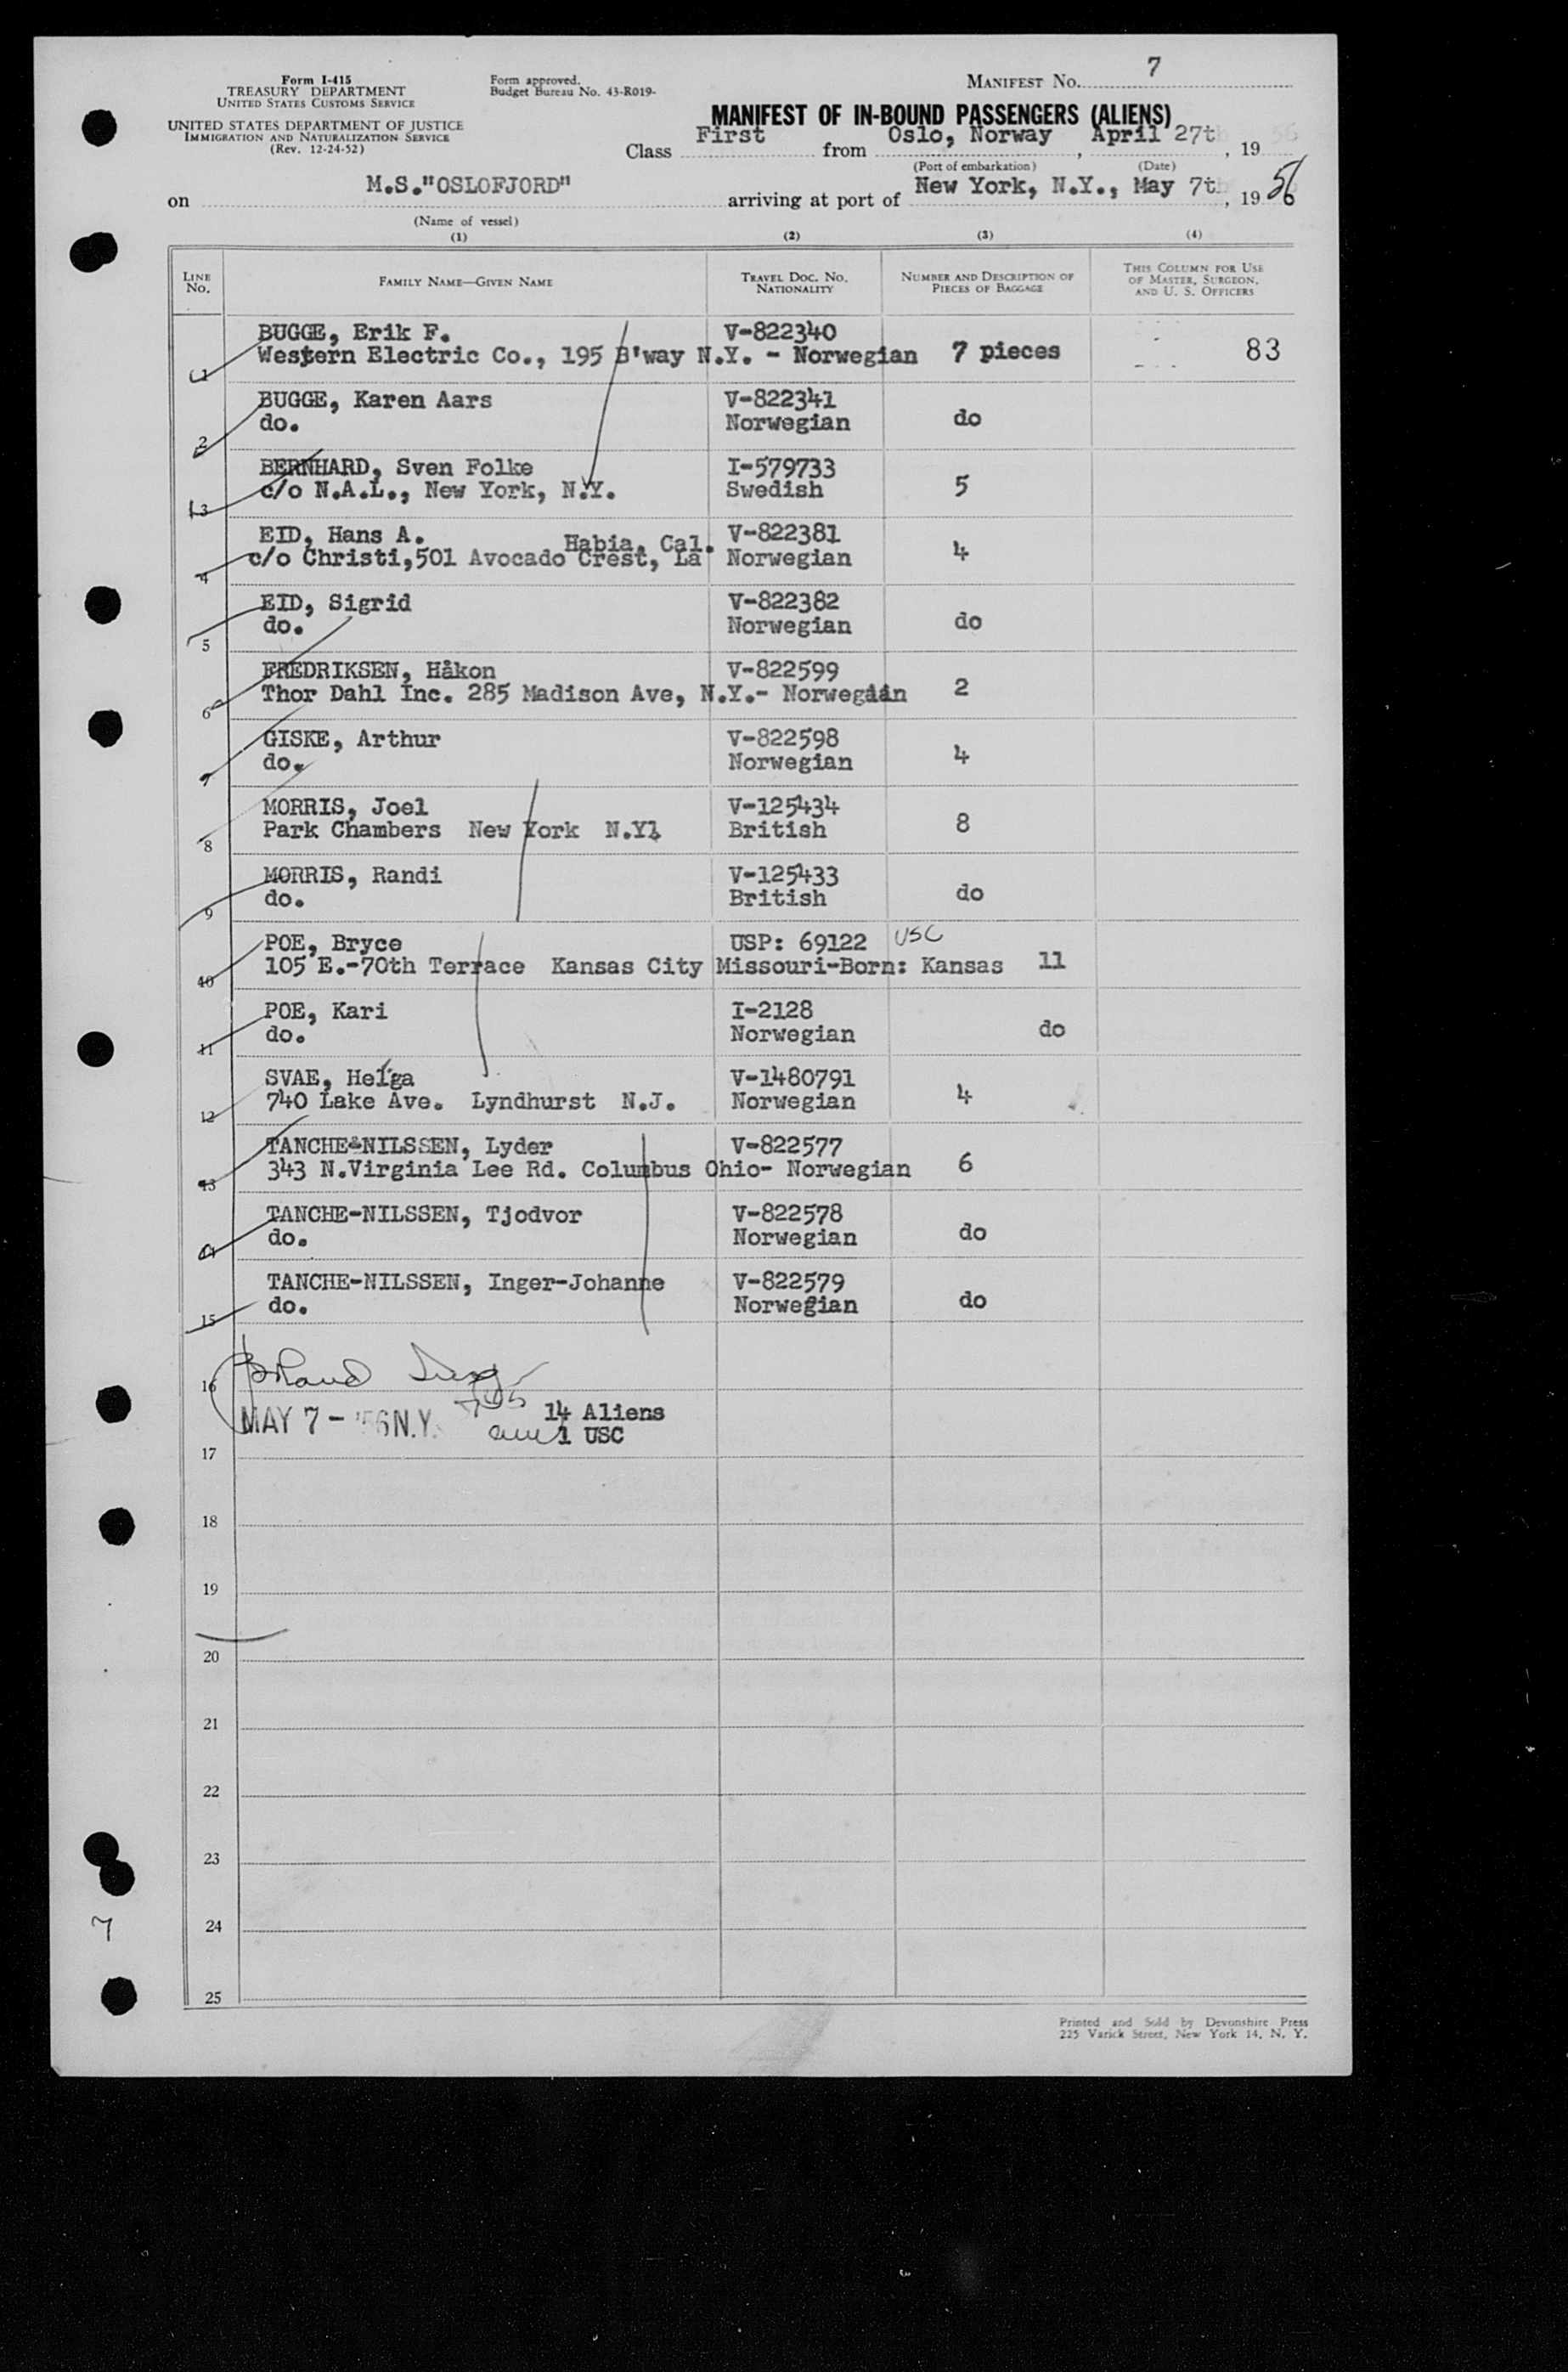 Form I-415
TREASURY DEPARTMENT
UNITED STATES CUSTOMS SERVICE
UNITED STATES DEPARTMENT OF JUSTICE
IMMIGRATION AND NATURALIZATION SERVICE
(Rev. 12-24-52)
Form approved.
Budget Bureau No. 43-R019-
MANIFEST NO. 7
MANIFEST OF IN-BOUND PASSENGERS (ALIENS)
Class First from Oslo, Norway, April 27th, 1956
(Port of embarkation) (Date)
on M.S."OSLOFJORD" arriving at port of New York, N.Y., May 7th, 1956
(Name of vessel)
(1) (2) (3) (4)
LINE NO. FAMILY NAME—GIVEN NAME TRAVEL DOC. NO. NATIONALITY NUMBER AND DESCRIPTION OF PIECES OF BAGGAGE THIS COLUMN FOR USE OF MASTER, SURGEON, AND U. S. OFFICERS
BUGGE, Erik F. V-822340
1 Western Electric Co., 195 B'way N.Y. - Norwegian 7 pieces 83
BUGGE, Karen Aars V-822341
2 do. Norwegian do
BERNHARD, Sven Folke I-579733
3 c/o N.A.L., New York, N.Y. Swedish 5
EID, Hans A. Habia, Cal. V-822381
4 c/o Christi,501 Avocado Crest, La Norwegian 4
EID, Sigrid V-822382
5 do. Norwegian do
FREDRIKSEN, Håkon V-822599
6 Thor Dahl Inc. 285 Madison Ave, N.Y.- Norwegian 2
GISKE, Arthur V-822598
7 do. Norwegian 4
MORRIS, Joel V-125434
8 Park Chambers New York N.Y. British 8
MORRIS, Randi V-125433
9 do. British do
POE, Bryce USP: 69122 USC
10 105 E.-70th Terrace Kansas City Missouri-Born: Kansas 11
POE, Kari I-2128
11 do. Norwegian do
SVAE, Helga V-1480791
12 740 Lake Ave. Lyndhurst N.J. Norwegian 4
TANCHE-NILSSEN, Lyder V-822577
13 343 N.Virginia Lee Rd. Columbus Ohio- Norwegian 6
TANCHE-NILSSEN, Tjodvor V-822578
14 do. Norwegian do
TANCHE-NILSSEN, Inger-Johanne V-822579
15 do. Norwegian do
16
MAY 7 - '56 N.Y. 14 Aliens
1 USC
17
18
19
20
21
22
23
24
25
7
Printed and Sold by Devonshire Press
225 Varick Street, New York 14, N. Y.